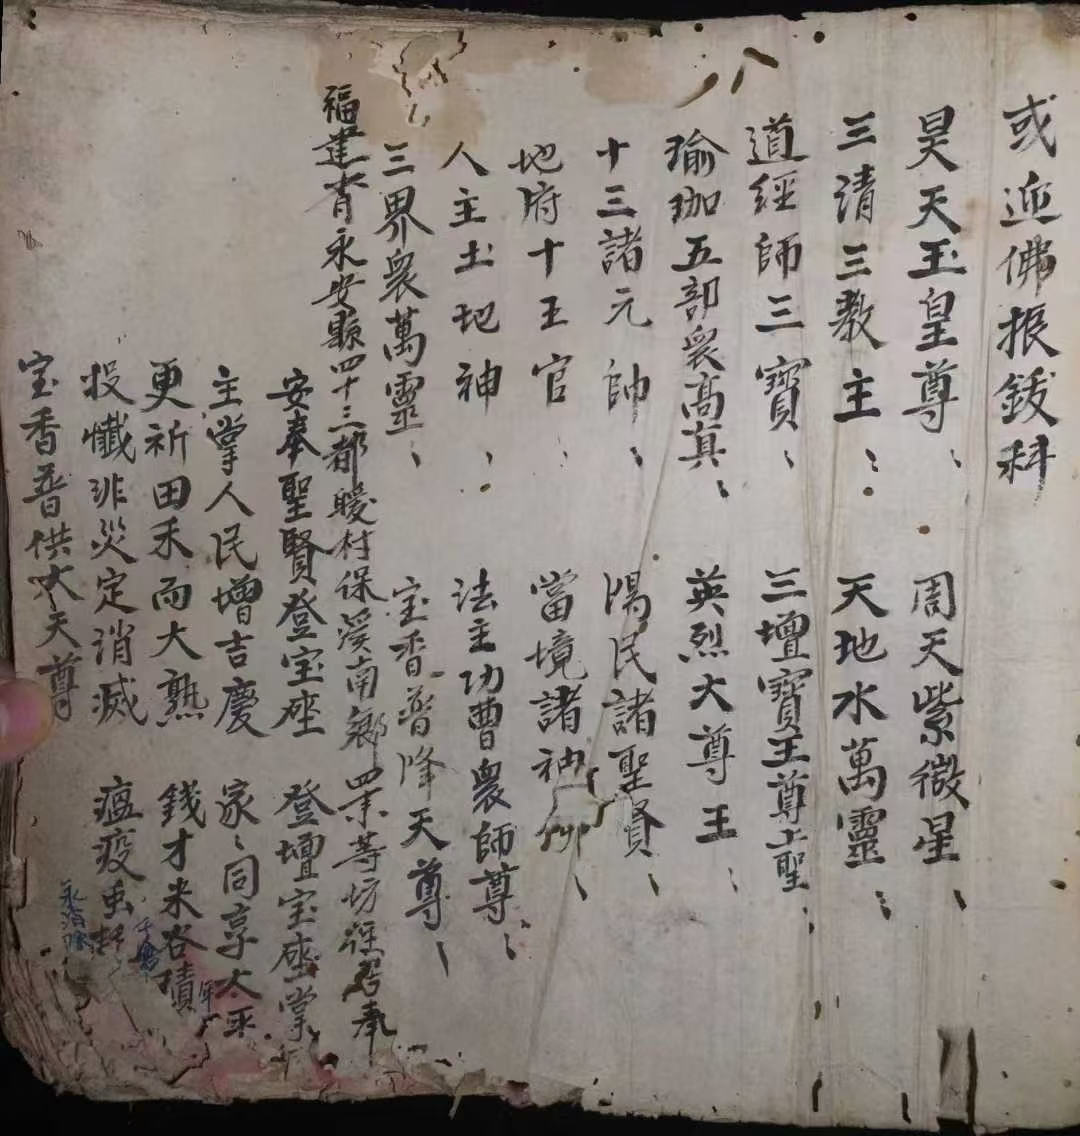 或迎佛振鈸科
昊天玉皇尊、 周天紫微星、
三清三教主、、 天地水萬靈、、
道經師三寶、 三壇寶王尊上聖、
瑜珈五部衆高真、、 英烈大尊王、
十三諸元帥、 陽民諸聖賢、、
地府十王官、 當境諸神
人主土地神、、 法主功曹衆師尊、、
三界衆萬靈、、 宝香普降天尊、、
福建省永安縣四十三都暖村保溪南鄉 業等坊 奉
安奉聖賢登宝座 登壇宝座掌
主掌人民增吉慶 家、同享太平
更祈田禾而大熟 錢才米谷積
投懺非災定消滅 瘟疫虫
宝香普供大天尊